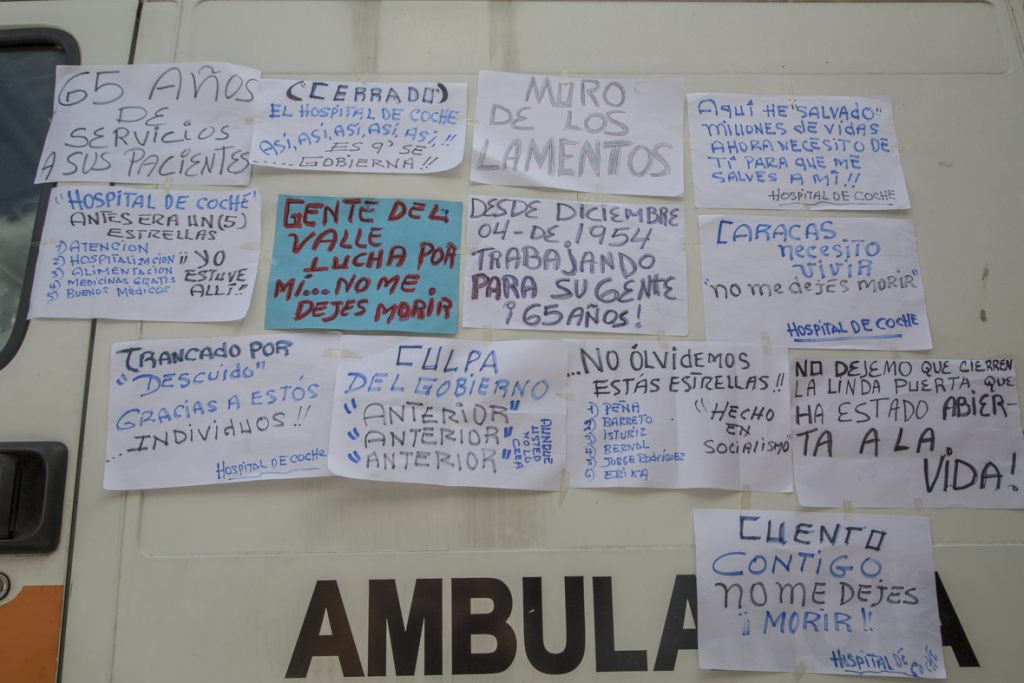 65 AÑOS
DE
SERVICIOS
A SUS PACIENTES
(CERRADO)
EL HOSPITAL DE COCHE
ASÍ, ASÍ, ASÍ, ASÍ, ASÍ,!!
...ES Qº SE
....GOBIERNA!!
MURO
DE LOS
LAMENTOS
AQUÍ HE "SALVADO"
MILLONES DE VIDAS
AHORA NECESITO DE
TÍ PARA QUE ME
SALVES A MÍ.!!
HOSPITAL DE COCHE
"HOSPITAL DE COCHE"
ANTES ERA UN (5)
ESTRELLAS
1) ATENCION
2) HOSPITALIZACION
3) ALIMENTACION
4) MEDICINAS GRATIS
5) BUENOS MÉDICOS
¡¡YO
ESTUVE
ALLÍ!!
GENTE DEL
VALLE
LUCHA POR
MÍ...NO ME
DEJES MORIR
DESDE DICIEMBRE
04-DE. 1954
TRABAJANDO
PARA SU GENTE
¡65 AÑOS!
CARACAS
NECESITO
VIVIR
"NO ME DEJES MORIR"
HOSPITAL DE COCHE
TRANCADO POR
"DESCUIDO"
GRACIAS A ESTÓS
...INDIVIDUOS!!
HOSPITAL DE COCHE
CULPA
DEL GOBIERNO
"ANTERIOR"
"ANTERIOR"
"ANTERIOR"
AUNQUE
USTED
NO LO
CREA
...NO ÓLVIDEMOS
ESTÁS ESTRELLAS!!
1) PEÑA
2) BARRETO
3) ISTURIZ
4) BERNAL
5) JORGE RODRÍGUEZ
6) ERIKA
"HECHO
EN
SOCIALISMO"
NO DEJEMO QUE CIERREN
LA LINDA PUERTA, QUE
HA ESTADO ABIER-
TA A LA,
VIDA!
CUENTO
CONTIGO
NO ME DEJES
¡¡MORIR!!
HOSPITAL DE COCHE
AMBULA A